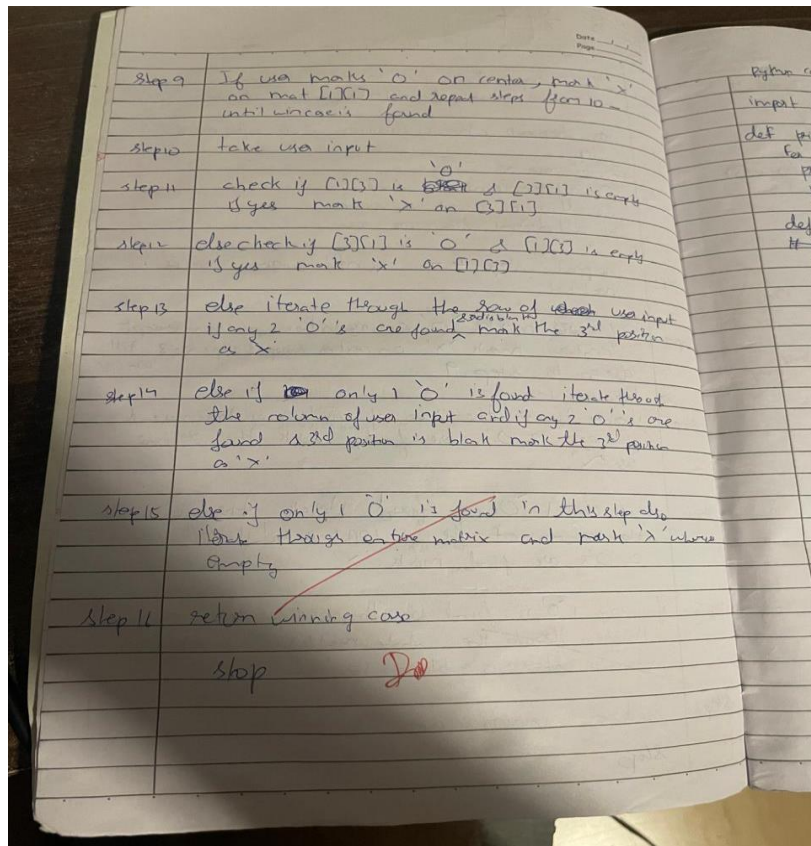 Date
Page
Step 9 If user marks 'O' on center, mark 'X'
on mat [1][1] and repeat steps from 10
until wincase is found
step 10 take user input
'O'
step 11 check if [1][3] is & [3][1] is empty
if yes mark 'X' on [3][1]
step 12 else check if [3][1] is 'O' & [1][3] is empty
if yes mark 'X' on [1][3]
step 13 else iterate through the row of user input
if any 2 'O's are found mark the 3rd position
as 'X'
step 14 else if only 1 'O' is found iterate through
the column of user input and if any 2 'O's are
found & 3rd position is blank mark the 3rd position
as 'X'
step 15 else if only 1 'O' is found in this step also
iterate through entire matrix and mark 'X' where
empty
step 16 return winning case
stop
Python
import
def
for
def